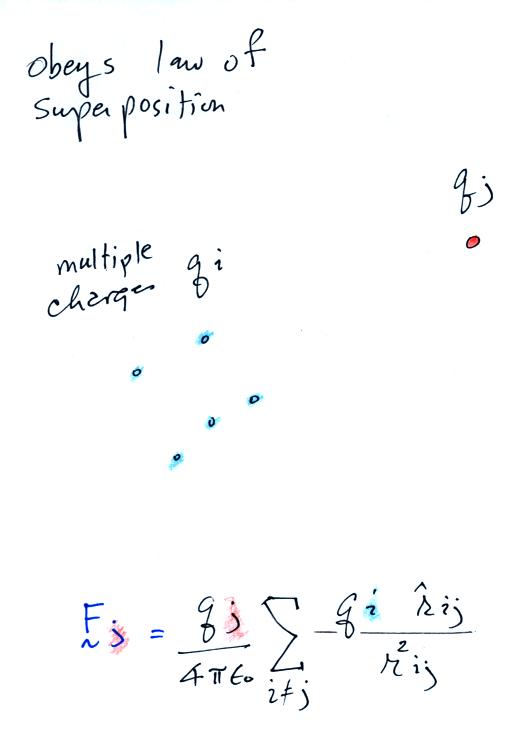 Obeys law of
superposition
qj
multiple qi
charges
F̰j = qj/4πϵ₀ ∑i≠j qi r̂ij/r²ij